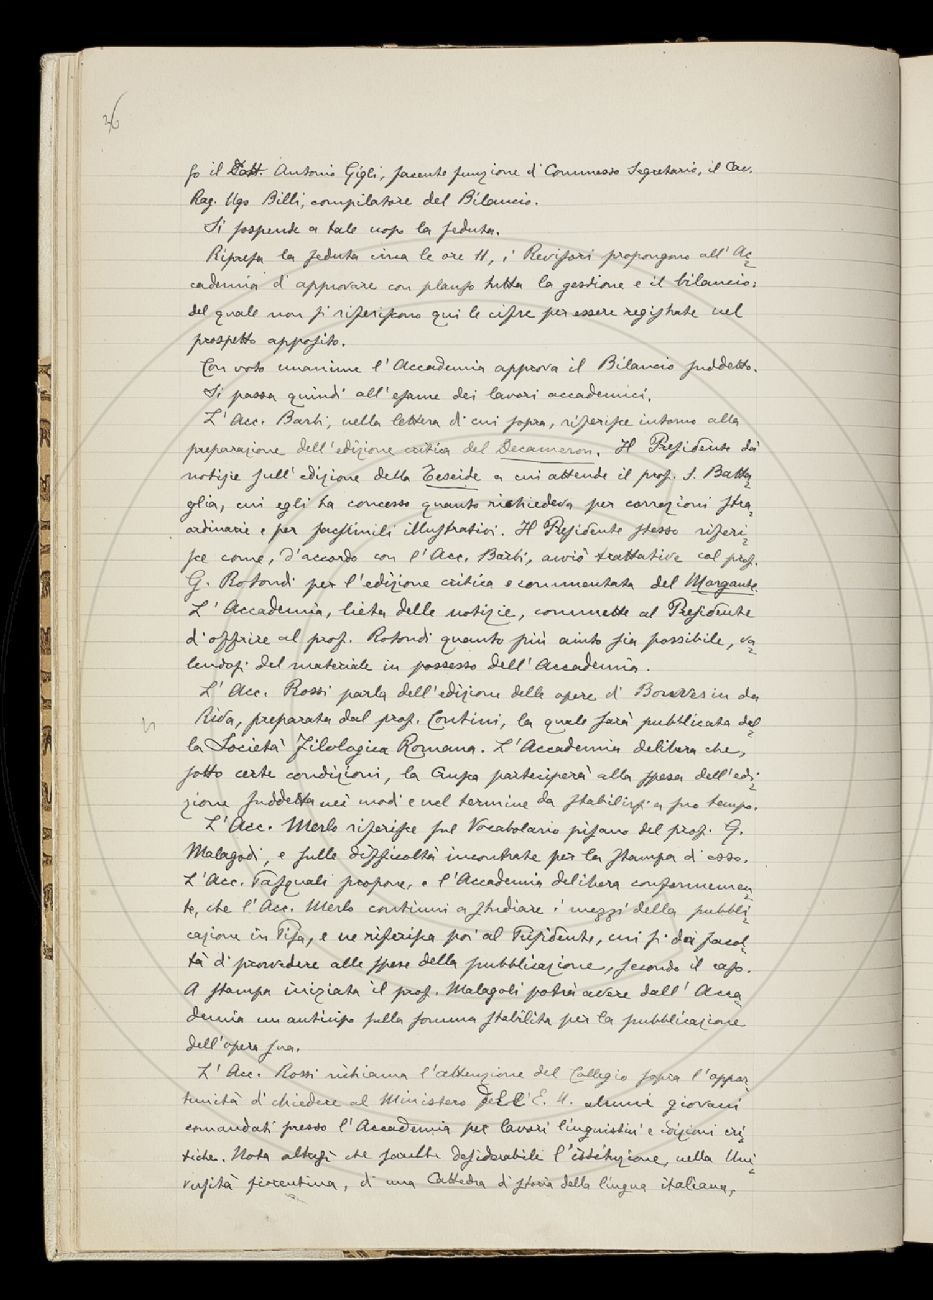 36
so il Dott. Antonio Gigli, facente funzione di Commesso Segretario, il Cav.
Rag. Ugo Billi, compilatore del Bilancio.
Si sospende a tale uopo la seduta.
Ripresa la seduta circa le ore 11, i Revisori propongono all'Ac=
cademia di approvare con plauso tutta la gestione e il bilancio;
del quale non si riferiscono qui le cifre per essere registrate nel
prospetto apposito.
Con voto unanime l'Accademia approva il Bilancio suddetto.
Si passa quindi all'esame dei lavori accademici.
L'Acc. Barbi, nella lettera di cui sopra, riferisce intorno alla
preparazione dell'edizione critica del Decameron. Il Presidente dà
notizie sull'edizione della Teseide a cui attende il prof. S. Batta=
glia, cui egli ha concesso quanto richiedeva per correzioni stra=
ordinarie e per facsimili illustrativi. Il Presidente stesso riferi=
sce come, d'accordo con l'Acc. Barbi, avviò trattative col prof.
G. Rotondi per l'edizione critica e commentata del Morgante.
L'Accademia, lieta delle notizie, commette al Presidente
d'offrire al prof. Rotondi quanto più aiuto sia possibile, va=
lendosi del materiale in possesso dell'Accademia.
L'Acc. Rossi parla dell'edizione delle opere di Bonvesin da
Riva, preparata dal prof. Contini, la quale sarà pubblicata dal=
la Società Filologica Romana. L'Accademia delibera che,
sotto certe condizioni, la Crusca parteciperà alla spesa dell'edi=
zione suddetta nei modi e nel termine da stabilirsi a suo tempo.
L'Acc. Merlo riferisce sul Vocabolario pisano del prof. G.
Malagodi, e sulle difficoltà incontrate per la stampa di esso.
L'Acc. Pasquali propone, e l'Accademia delibera conformemen=
te, che l'Acc. Merlo continui a studiare i mezzi della pubbli=
cazione in Pisa, e ne riferisca poi al Presidente, cui si dà facol=
tà di provvedere alle spese della pubblicazione, secondo il caso.
A stampa iniziata il prof. Malagoli potrà avere dall'Acca=
demia un anticipo sulla somma stabilita per la pubblicazione
dell'opera sua.
L'Acc. Rossi richiama l'attenzione del Collegio sopra l'oppor=
tunità di chiedere al Ministero dell'E. N. alcuni giovani
comandati presso l'Accademia per lavori linguistici e edizioni cri=
tiche. Nota altresì che sarebbe desiderabile l'istituzione, nella Uni=
versità fiorentina, di una Cattedra di storia della lingua italiana,